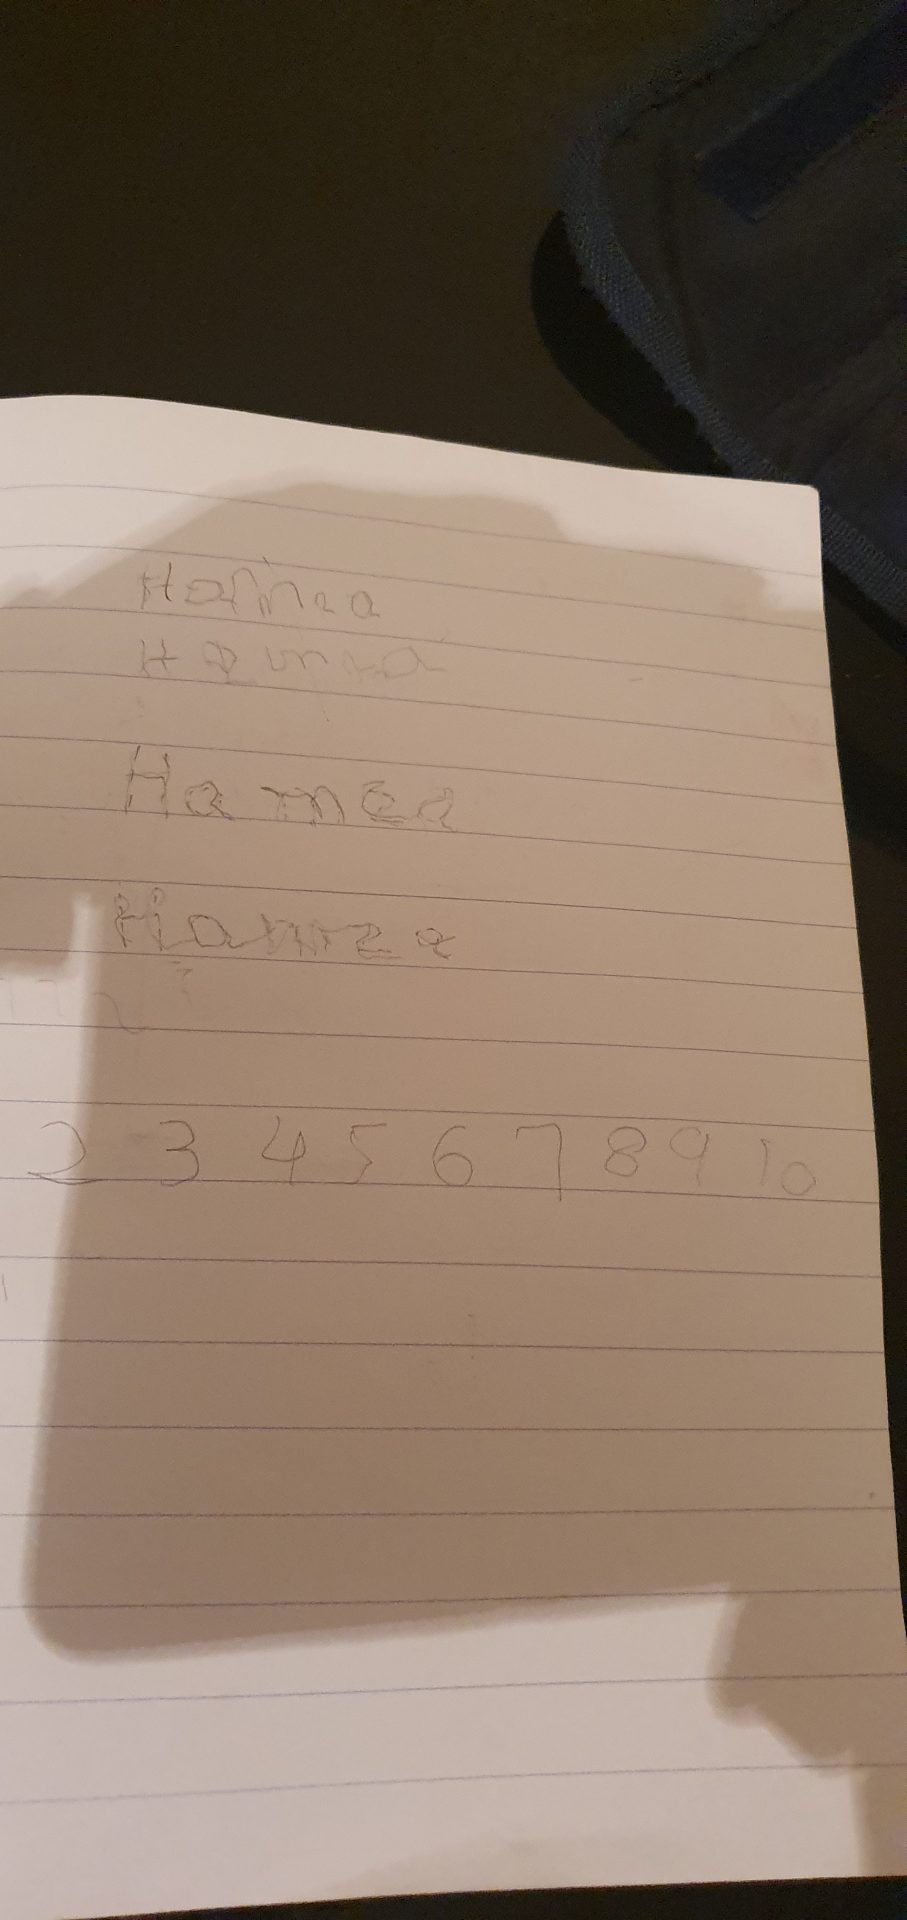 Hamza
Hamza
Hamza
Hamza
2 3 4 5 6 7 8 9 10